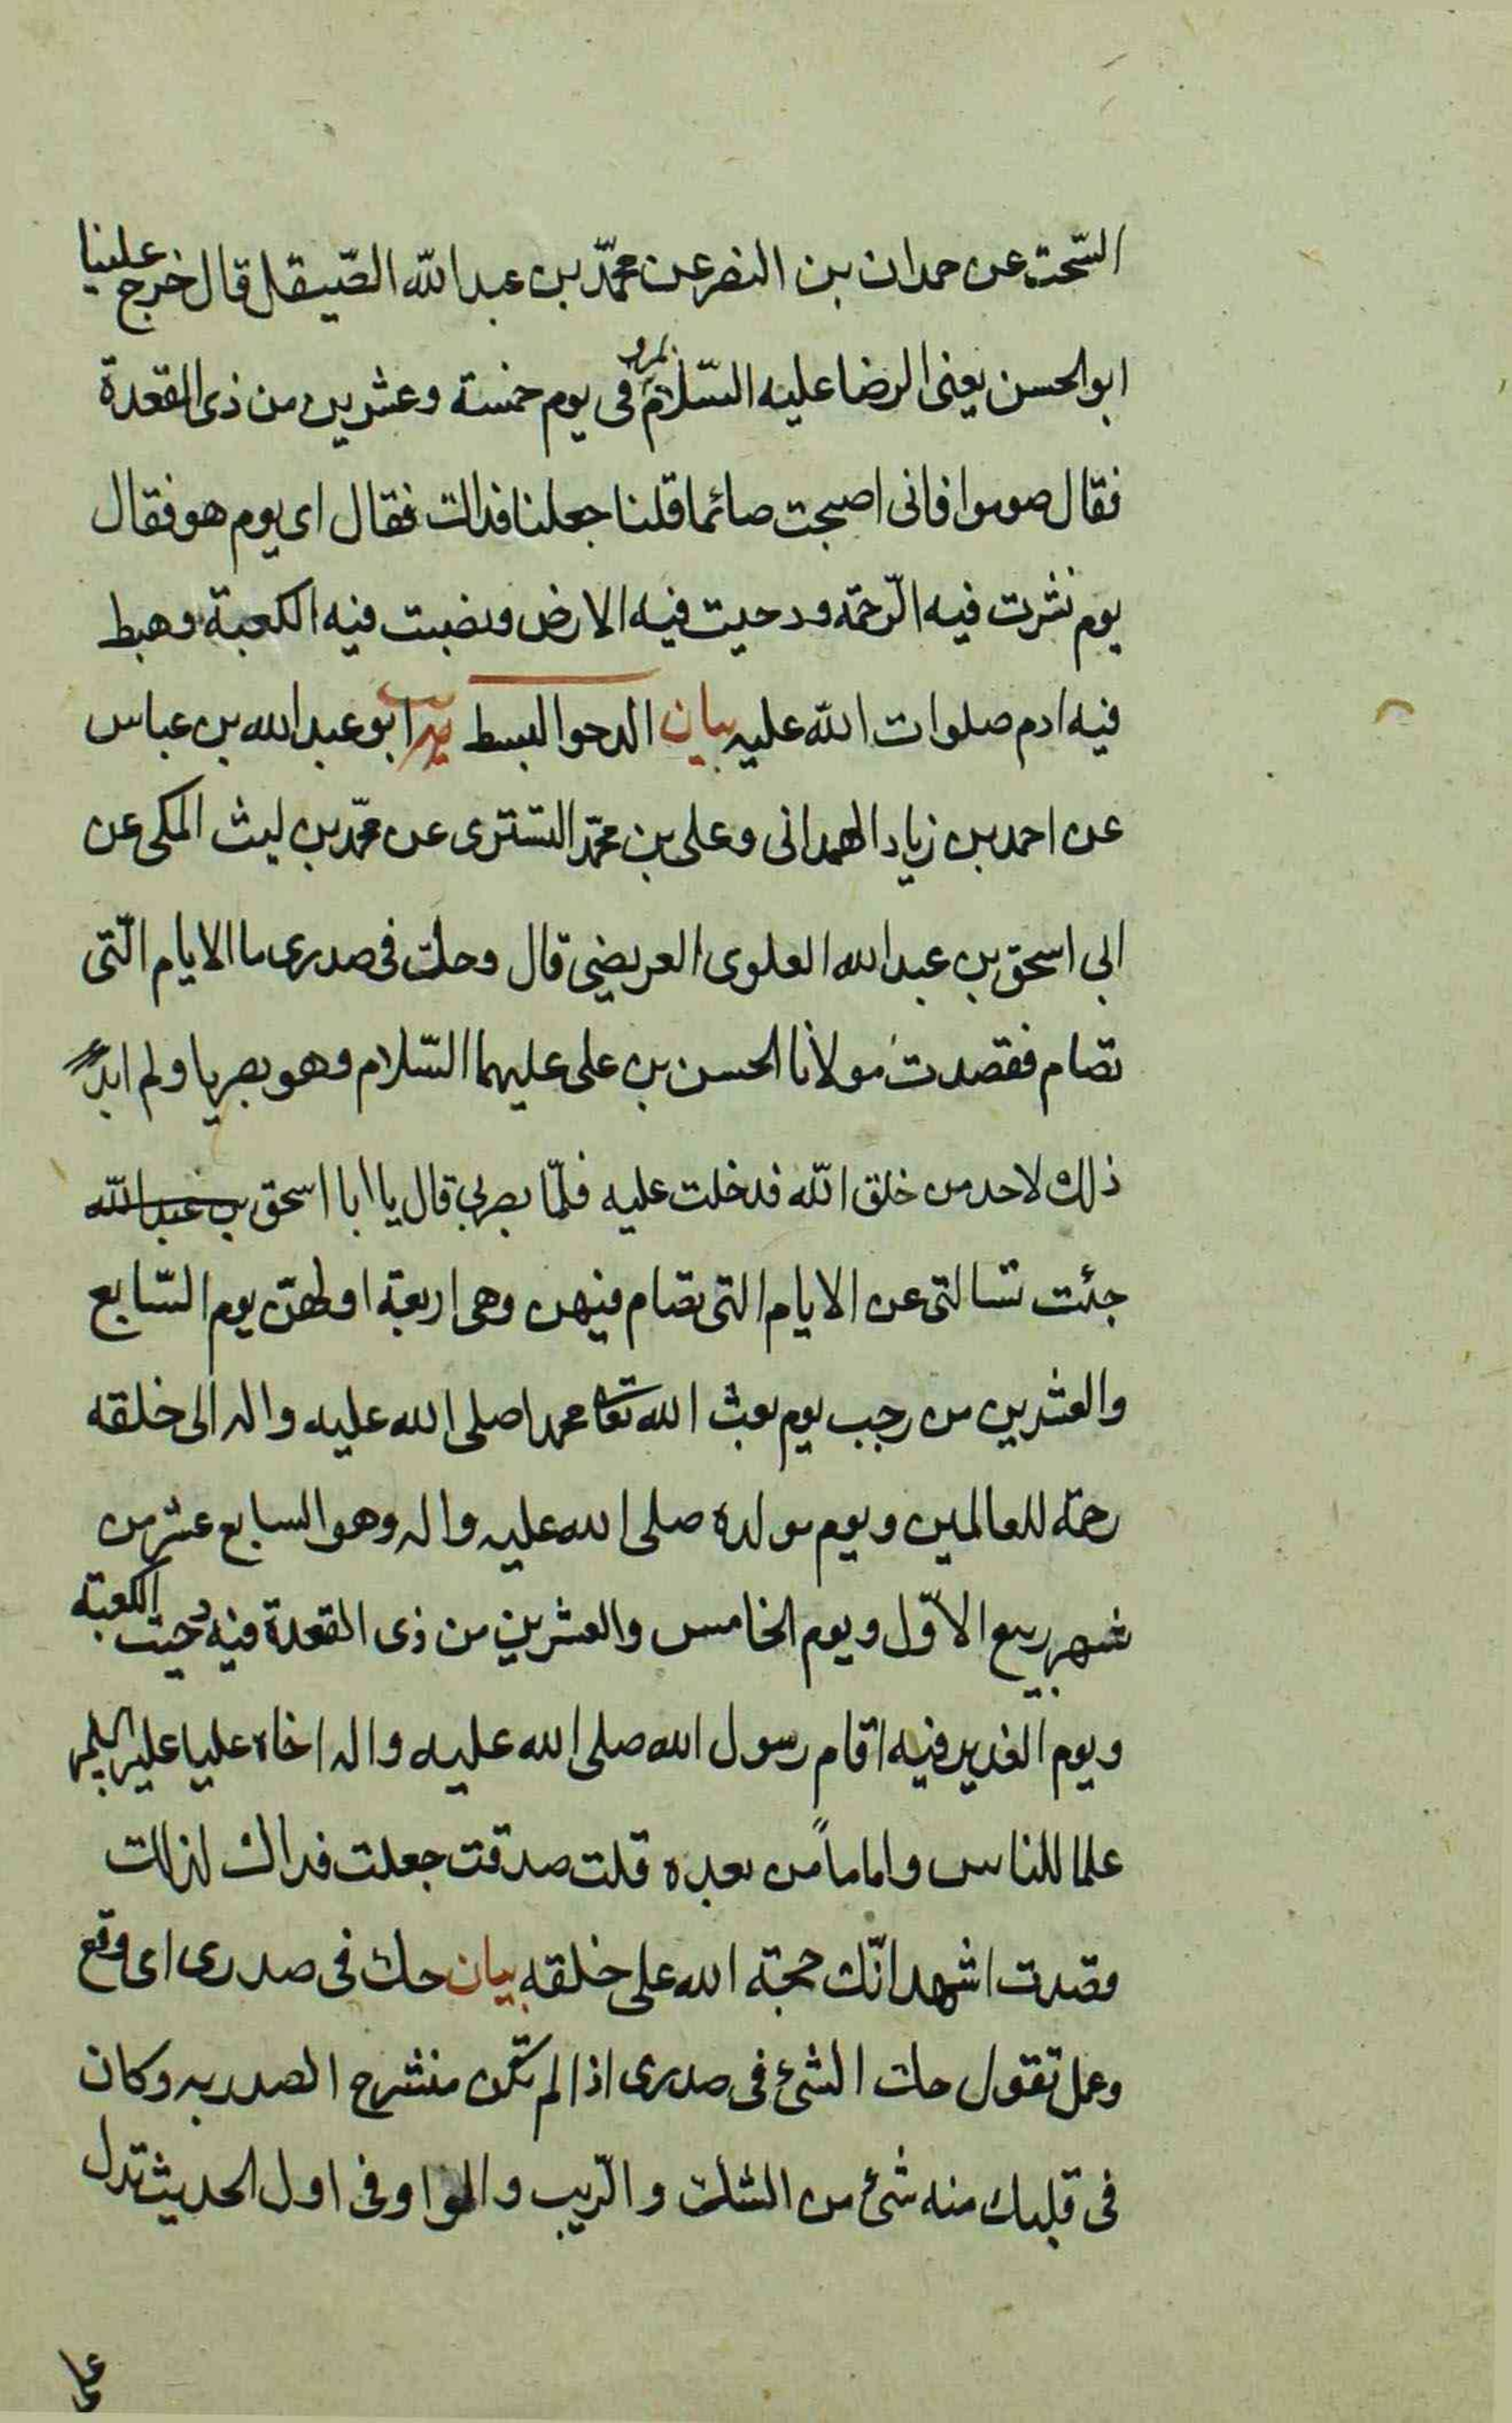 السّخت عن حمدان بن النضر عن محمّد بن عبد الله الصّيقل قال خرج علينا
ابو الحسن يعنى الرضا عليه السّلام بمرو فى يوم خمسة وعشرين من ذى القعدة
فقال صوموا فانى اصبحت صائما قلنا جعلنا فداك فقال اى يوم هو فقال
يوم نشرت فيه الرّحمة ودحيت فيه الارض ونصبت فيه الكعبة وهبط
فيه ادم صلوات الله عليه بيان الدحو البسط يب ابو عبد الله بن عباس
عن احمد بن زياد الهمدانى وعلى بن محمّد التسترى عن محمّد بن ليث المكى عن
ابى اسحق بن عبد الله العلوى العريضى قال وحك فى صدرى ما الايام الّتى
تصام فقصدت مولانا الحسن بن على عليهما السّلام وهو بصريا ولم ابد
ذلك لاحد من خلق الله فدخلت عليه فلمّا بصر بى قال يا ابا اسحق بن عبد الله
جئت تسالنى عن الايام التى تصام فيهن وهى اربعة اولهنّ يوم السّابع
والعشرين من رجب يوم بعث الله تعا محمدا صلى الله عليه واله الى خلقه
رحمة للعالمين ويوم مولده صلى الله عليه واله وهو السابع عشر من
شهر ربيع الاوّل ويوم الخامس والعشرين من ذى القعدة فيه دحيت الكعبة
ويوم الغدير فيه اقام رسول الله صلى الله عليه واله اخاه عليا عليه السلم
علما للناس واماماً من بعده قلت صدقت جعلت فداك لذلك
قصدت اشهد انّك حجة الله على خلقه بيان حك فى صدرى اى وقع
وعمل تقول حك الشئ فى صدرى اذا لم تكن منشرح الصدر به وكان
فى قلبك منه شئ من الشك والرّيب والواو فى اول الحديث تدل
على